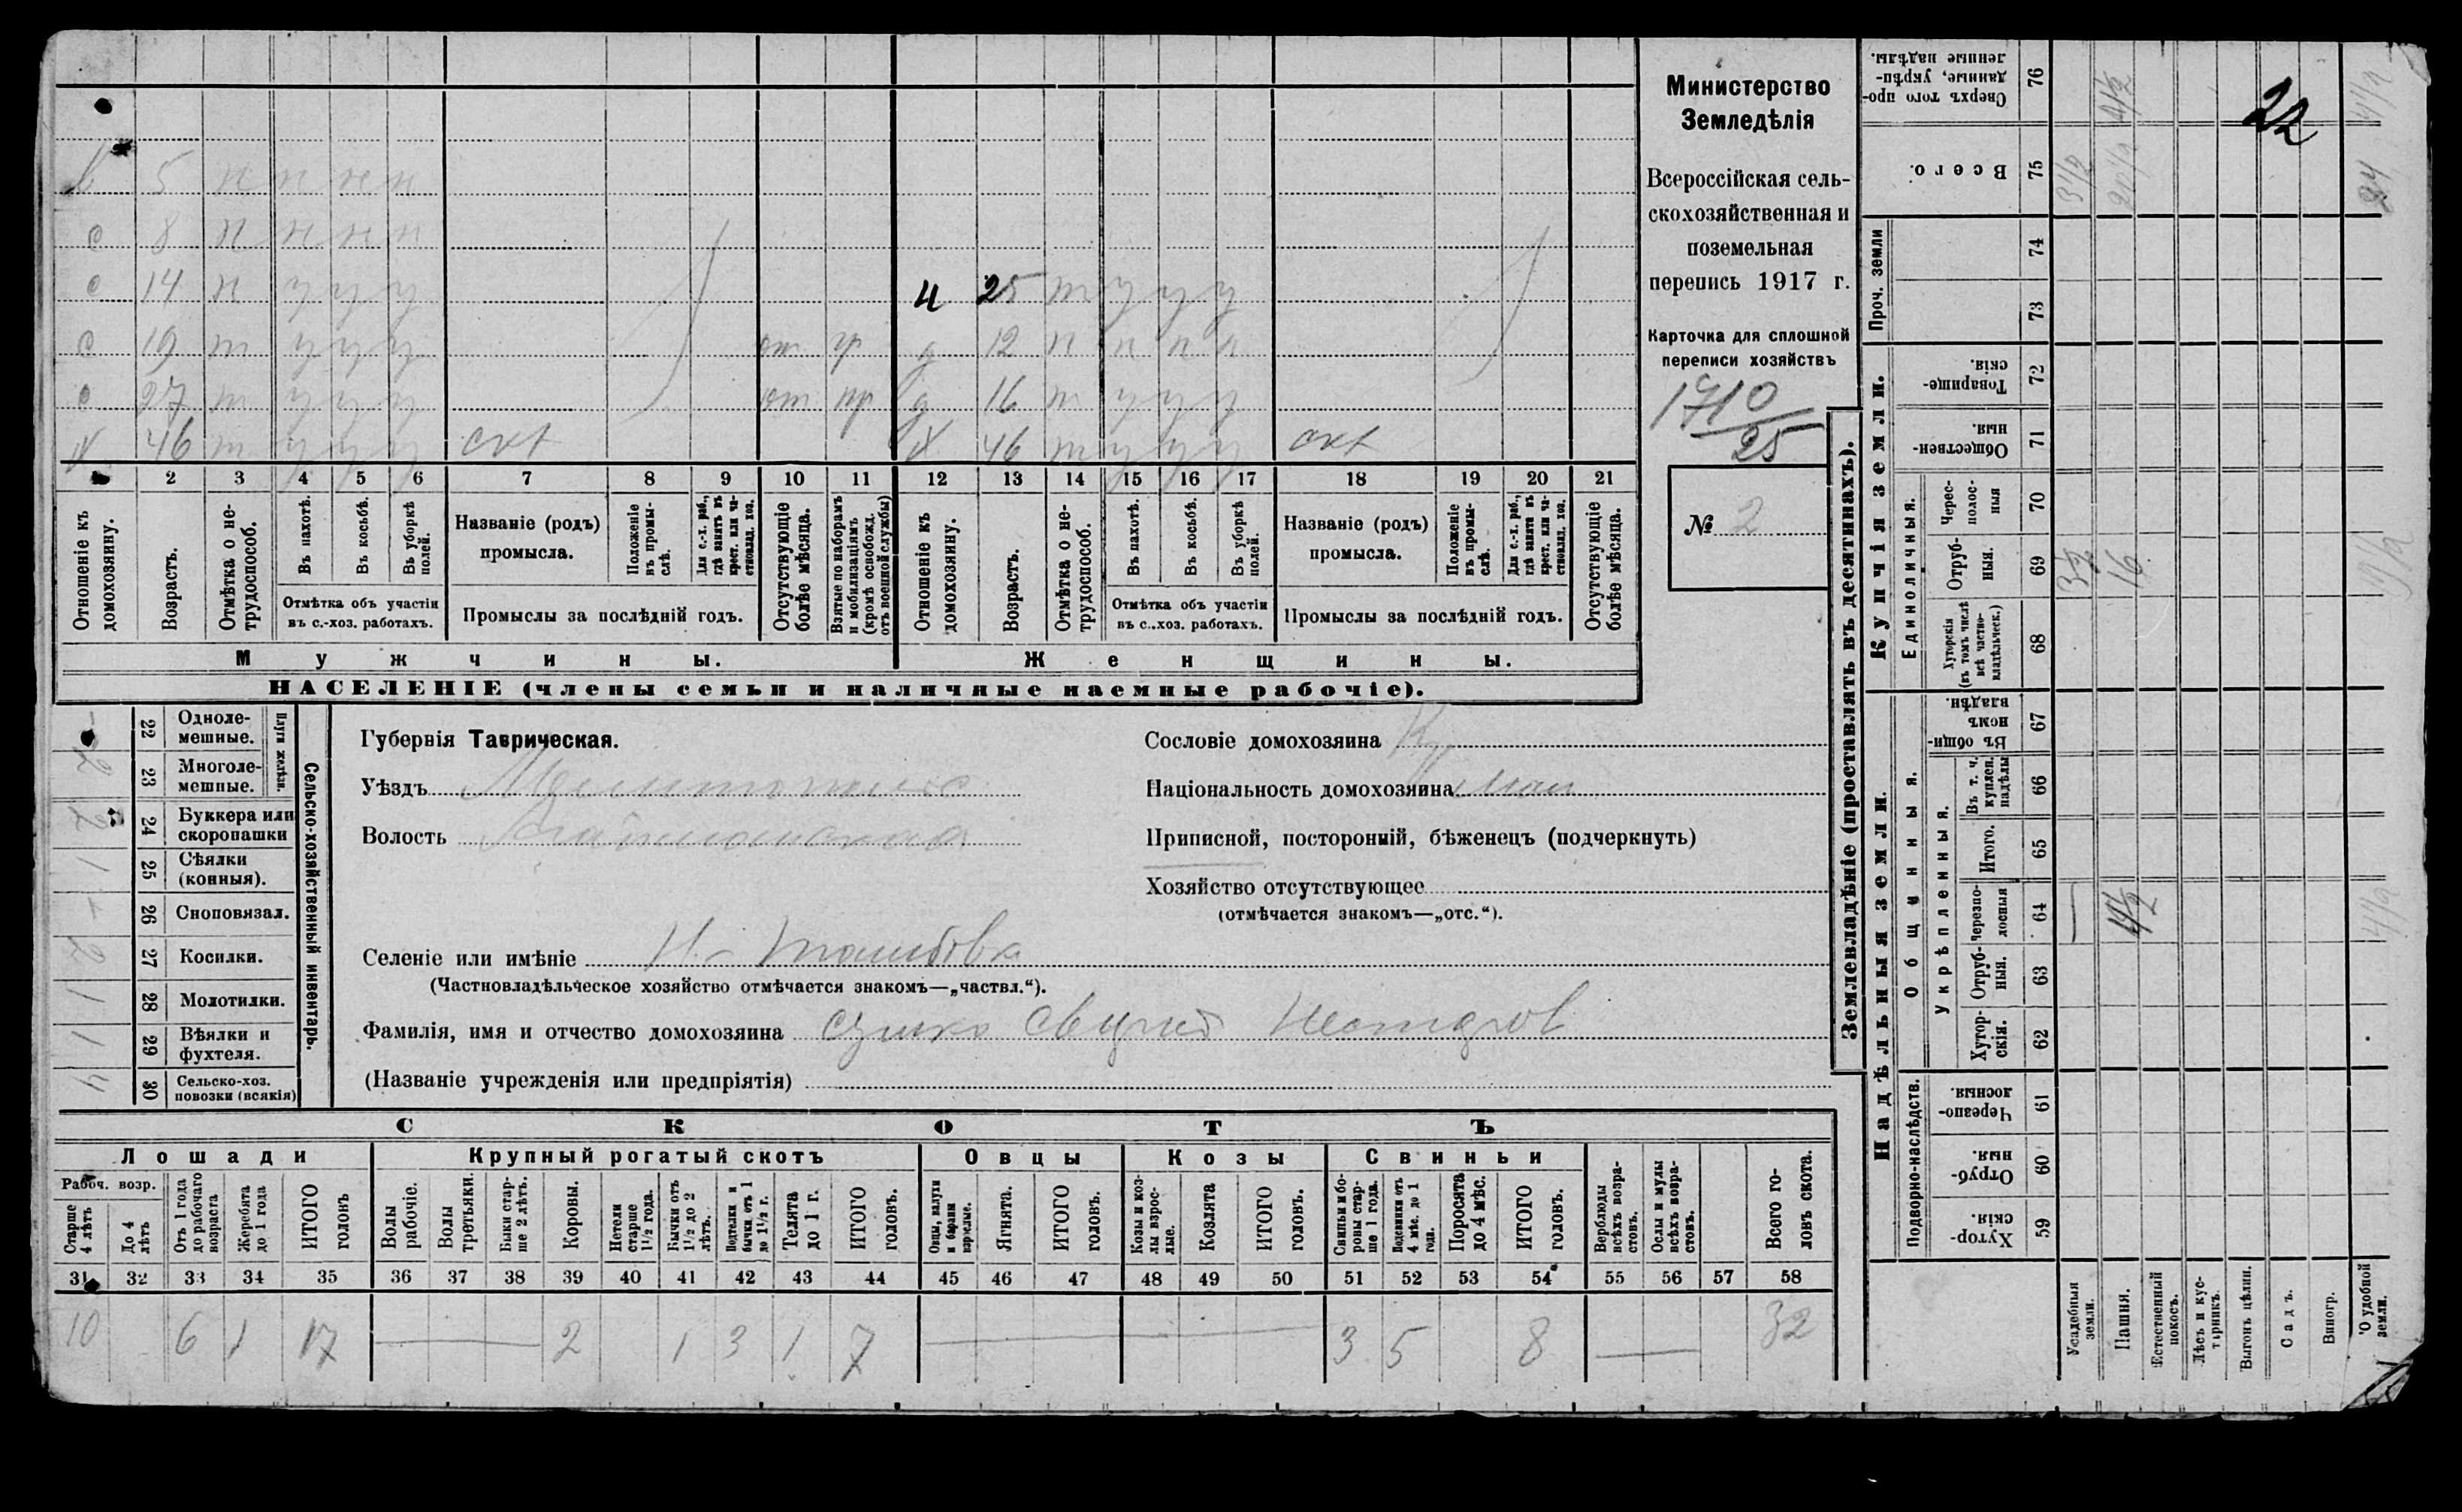 в 5 н н н н
с 8 н н н н
с 14 п у у у
ч 25 т у у у
с 19 т у у у от пр д 12 п п п п
с 27 т у у у от пр д 16 т у у у
х 46 т у у у схх х 46 т у у у схх
2 3 4 5 6 7 8 9 10 11 12 13 14 15 16 17 18 19 20 21
Отношеніе къ домохозяину.
Возрастъ.
Отмѣтка о не-трудоспособ.
Въ пахотѣ.
Въ косьбѣ.
Въ уборкѣ полей.
Отмѣтка объ участіи
въ с.-хоз. работахъ.
Названіе (родъ)
промысла.
Положеніе въ промы-слѣ.
Для с.-х. раб., гдѣ занятъ въ крест. или ча-стновлад. хоз.
Промыслы за послѣдній годъ.
Отсутствующіе болѣе мѣсяца.
Взятые по наборамъ и мобилизаціямъ (кромѣ освобожд. отъ военной службы)
Отношеніе къ домохозяину.
Возрастъ.
Отмѣтка о не-трудоспособ.
Въ пахотѣ.
Въ косьбѣ.
Въ уборкѣ полей.
Отмѣтка объ участіи
въ с.-хоз. работахъ.
Названіе (родъ)
промысла.
Положеніе въ промы-слѣ.
Для с.-х. раб., гдѣ занята въ крест. или ча-стновлад. хоз.
Промыслы за послѣдній годъ.
Отсутствующіе болѣе мѣсяца.
Мужчины. Женщины.
НАСЕЛЕНІЕ (члены семьи и наличные наемные рабочіе).
Министерство
Земледѣлія
Всероссійская сель-
скохозяйственная и
поземельная
перепись 1917 г.
Карточка для сплошной
переписи хозяйствъ
1710
25
№ 2
Сельско-хозяйственный инвентарь.
Плуги желѣзн.
22 Одноле-
мешные.
2 23 Многоле-
мешные.
2 24 Буккера или
скоропашки
1 25 Сѣялки
(конныя).
26 Сноповязал.
2 27 Косилки.
1 28 Молотилки.
1 29 Вѣялки и
фухтеля.
4 30 Сельско-хоз.
повозки (всякія)
Губернія Таврическая.
Уѣздъ Мелитопольс
Волость
Сословіе домохозяина Кр
Національность домохозяина мал
Приписной, посторонній, бѣженецъ (подчеркнуть)
Хозяйство отсутствующее
(отмѣчается знакомъ—„отс.“).
Селеніе или имѣніе
(Частновладѣльческое хозяйство отмѣчается знакомъ—„частвл.“).
Фамилія, имя и отчество домохозяина Сушко
(Названіе учрежденія или предпріятія)
СКОТЪ
Лошади Крупный рогатый скотъ Овцы Козы Свиньи
Рабоч. возр.
Старше 4 лѣтъ
До 4 лѣтъ
Отъ 1 года до рабочаго возраста
Жеребята до 1 года
ИТОГО головъ
Волы рабочіе.
Волы третьяки.
Быки стар-ше 2 лѣтъ.
Коровы.
Нетели старше 1½ года.
Бычки отъ 1½ до 2 лѣтъ.
Подтелки и бычки отъ 1 до 1½ г.
Телята до 1 г.
ИТОГО головъ.
Овцы, валухи и бараны взрослые.
Ягнята.
ИТОГО головъ.
Козы и коз-лы взрос-лые.
Козлята
ИТОГО головъ.
Свиньи и бо-ровы стар-ше 1 года.
Подсвинки отъ 4 мѣс. до 1 года.
Поросята до 4 мѣс.
ИТОГО головъ.
Верблюды всѣхъ возра-стовъ.
Ослы и мулы всѣхъ возра-стовъ.
Всего го-ловъ скота.
31 32 33 34 35 36 37 38 39 40 41 42 43 44 45 46 47 48 49 50 51 52 53 54 55 56 57 58
10 6 1 17 2 1 3 1 7 3 5 8 32
Землевладѣніе (проставлять въ десятинахъ).
Сверхъ того про-данные, укрѣп-ленные надѣлы. 76 4½
22
Всего. 75 3½ 20½ 24
Купчія земли.
Проч. земли 74
73
Товарище-скія. 72
Обществен-ныя. 71
Единоличныя.
Черес-полос-ныя 70
Отруб-ныя. 69 3½ 16 19½
Хуторскія (въ томъ числѣ всѣ частно-владѣльческ.) 68
Надѣльныя земли.
Общинныя.
Въ общин-номъ владѣн. 67
Укрѣпленныя.
Въ т. ч. куплен. надѣлы 66
Итого. 65
Черезпо-лосныя 64 4½ 4½
Отруб-ныя. 63
Хутор-скія. 62
Подворно-наслѣдств.
Черезпо-лосныя. 61
Отруб-ныя. 60
Хутор-скія. 59
Усадебныя земли.
Пашня.
Естественный покосъ.
Лѣсъ и кус-тарникъ.
Выгонъ цѣлин.
Садъ.
Виногр.
О удобной земли.